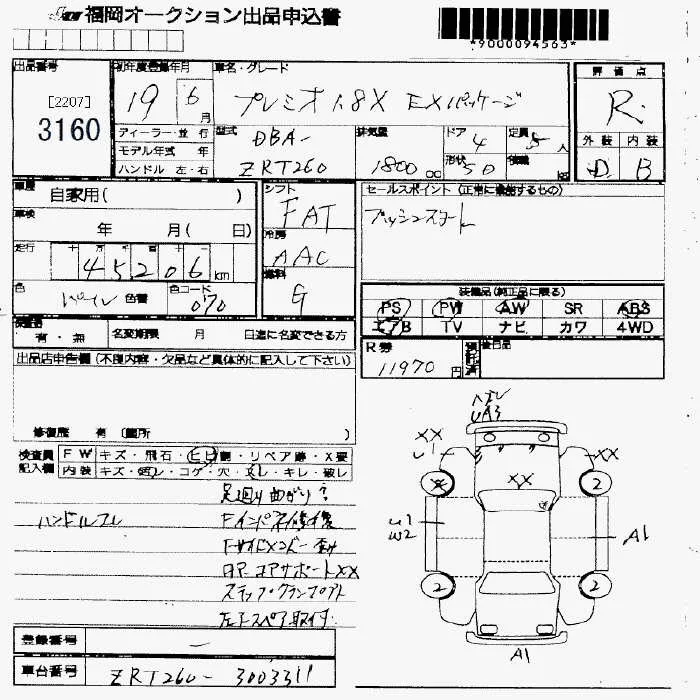 福岡オークション出品申込書
*9000094563*
出品番号
[2207]
3160
初年度登録年月
19 6月
車名・グレード
プレミオ 1.8X EXパッケージ
評価点
R
外装 内装
D B
ディーラー・並行
モデル年式 年
ハンドル 左・右
型式
DBA-
ZRT260
排気量
1800 cc
ドア 4
形状 5D
定員 5人
積載 kg
車歴
自家用( )
車検
年 月( 日)
走行
十 万 千 百 十
45206 km
色
パール 色替
色コード
070
シフト
FAT
冷房
AAC
燃料
G
セールスポイント (正常に機能するもの)
プッシュスタート
装備品(純正品に限る)
PS PW AW SR ABS
エアB TV ナビ カワ 4WD
R券
11970円
預託済
後日品
有・無
名変期限 月 日迄に名変できる方
出品店申告欄(不良内容・欠品など具体的に記入して下さい)
修復歴 有(箇所 )
検査員
記入欄
FW キズ・飛石・ヒビ割・リペア跡・X要
内装 キズ・スレ・コゲ・穴・ヨゴレ・キレ・破レ
足廻り曲がり?
ハンドルスレ
Fインパネ修復
Fサイドメンバー歪み
コアサポートXX
ステップクランプアト
スペア取付
登録番号
—
車台番号
ZRT260-3003311
ハズレ
UA3
XX
U1
XX
XX
2
2
2
U1
W2
A1
A1